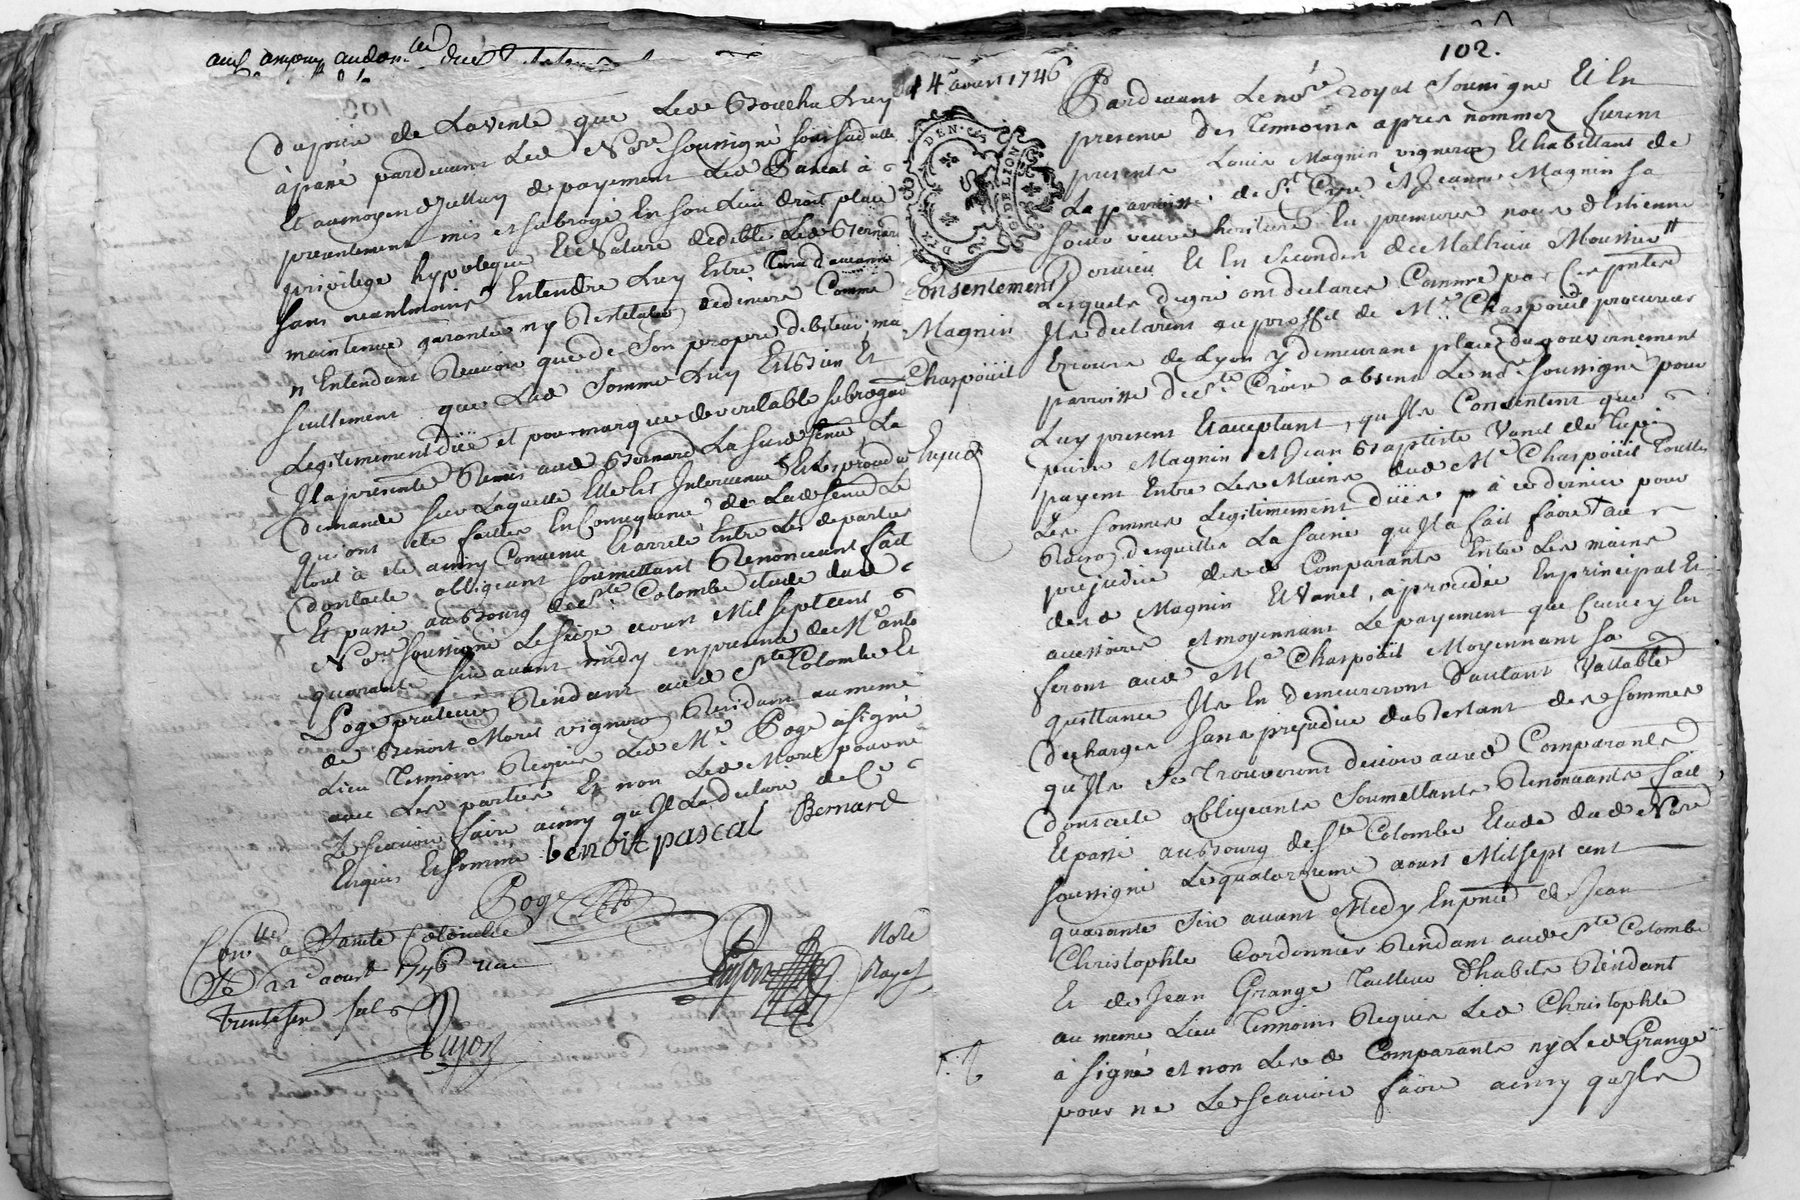 Du prix de La vente que Led Bouchu Luy
à passé pardevant Led No.re soussigné
Et au moyen dudluy de payement Led Pascal à
presentement mis et subrogé En son Lieu droit place
privilege hypoteque Et Nature dedebte Led Bernard
sans neantmoins Entendre Luy Estre Tenu d'aucunne
maintenue garantie ny Restitution dedeniers Comme
n'Entendant Recevoir que de Son propre debiteur mais
seullement que Lad Somme Luy Est bien Et
Legitimement düe et pour marque de veritable subrogaon
Il a presentement Remis aud Bernard La susd
demande sur Laquelle Elle Est Intervenue Et Les procedures
qui ont eté faittes En Consequence de Lad Senten Le
tout à eté ainsy Convenu Et arreté Entre Lesd parties
Dont acte obligeant soumettant Renonceant fait
Et passé au Bourg de S.te Colombe etude dud
No.re soussigné Le seize aoust Mil sept cent
quarante Six avant midy en presence de M.e
Poge praticien Residant aud S.te Colombe Et
de Benoit Moret vigneron Residant au meme
Lieu Temoins Requis Led M.e Poge à signé
avec Les parties Et non Led Moret pour ne
Le scavoir faire ainsy qu'Il La declaré de Ce
Enquis Et sommé benoit pascal Bernard
Poge
Con.lle a Sainte Colombe
Le 22 aoust 1746
trente six sols
Dujon
Dujon No.re Royal
102.
14 aoust 1746
DEN.
DE LION
Consentement
Magnin
Charpoüil
Pardevant Le no.re royal Soussigné Et En
presence des Temoins apres nommez furent
presents Louis Magnin vigneron Et habittant de
La parroisse de S.t Cyr Et Jeanne Magnin sa
soeur veuve heritiere En premieres noces d'Estienne
Et En Secondes de Mathieu Moussier
Lesquels de gré ont declaré Comme par Ces p.ntes
Ils declarent au proffit de M.e Charpoüil procureur
Ez cours de Lyon y demeurant place du gouvernement
parroisse de S.te Croix absent Le no.re soussigné pour
Luy present Et acceptant, qu'Ils Consentent que
pierre Magnin et Jean Baptiste Vanel de Tupin
payent Entre Les Mains dud M.e Charpoüil Touttes
Les sommes Legitimement düës à ce dernier pour
Raison desquelles La saisie qu'Il a fait faire au
prejudice desd Comparants Entre Les mains
desd Magnin Et Vanel, à procedée En principal Et
accessoires et moyennant Le payement que Ceux cy En
feront aud M.e Charpoüil Moyennant sa
quittance Ils En demeureront D'autant Vallablem.t
dechargés Sans prejudice du Restant desd sommes
qu'Ils Se Trouveront devoir auxd Comparants
Dont acte obligeants Soumettants Renonceants fait
Et passé au Bourg de S.te Colombe Etude dud No.re
soussigné Le quatorzieme aoust Mil sept cent
quarante Six avant Midy En p.nce de Jean
Christophle Cordonnier Residant aud S.te Colombe
Et de Jean Grange Tailleur d'habits Residant
au meme Lieu Temoins Requis Led Christophle
à signé et non Lesd Comparants ny Led Grange
pour ne Le scavoir faire ainsy qu'Ils